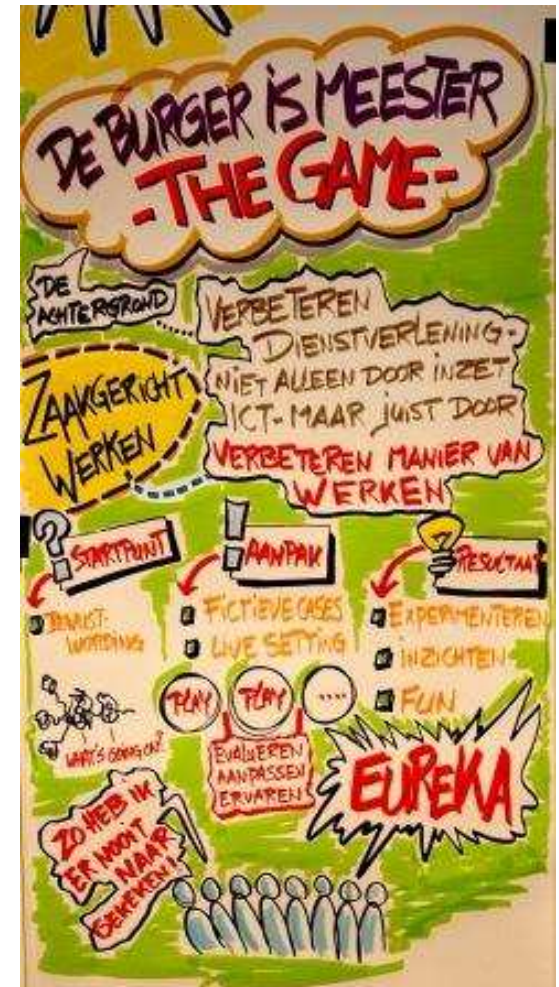 DE BURGER IS MEESTER
-THE GAME-
DE
ACHTERGROND
VERBETEREN
DIENSTVERLENING-
NIET ALLEEN DOOR INZET
ICT- MAAR JUIST DOOR
VERBETEREN MANIER VAN
WERKEN
ZAAKGERICHT
WERKEN
?
STARTPUNT
BEWUST-
WORDING
WHAT'S GOING ON?
!
AANPAK
FICTIEVE CASES
LIVE SETTING
PLAY
PLAY
....
EVALUEREN
AANPASSEN
ERVAREN
RESULTAAT
EXPERIMENTEREN
INZICHTEN
FUN
EUREKA
ZO HEB IK
ER NOOIT
NAAR
GEKEKEN!